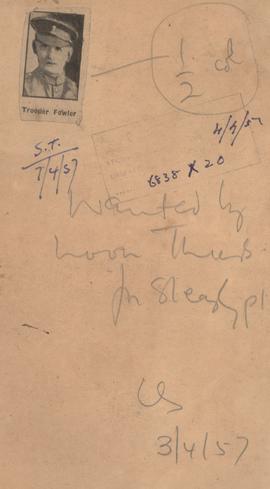 Trooper Fowler
1/2 col
4/4/57
S.T.
7/4/57
6838 x 20
Wanted by
noon Thurs
for
3/4/57